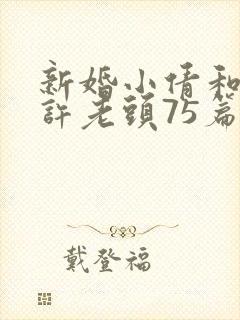 新婚小倩和
許老頭75篇
戴登福